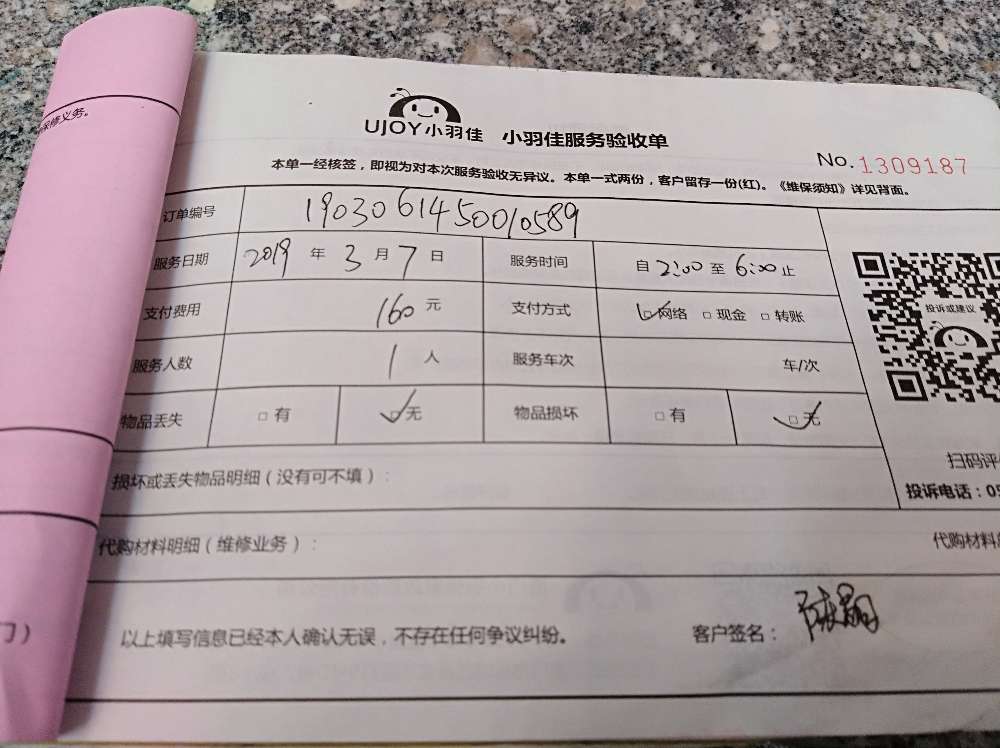 保修义务。
UJOY小羽佳 小羽佳服务验收单
No.1309187
本单一经核签，即视为对本次服务验收无异议。本单一式两份，客户留存一份(红)。《维保须知》详见背面。
订单编号 1903061450010589
服务日期 2019 年 3 月 7 日 服务时间 自 2:00 至 6:00 止
支付费用 160 元 支付方式 □网络 □现金 □转账
投诉或建议
服务人数 1 人 服务车次 车/次
物品丢失 □有 □无 物品损坏 □有 □无
扫码评
损坏或丢失物品明细（没有可不填）：
投诉电话：0
代购材料明细（维修业务）： 代购材料
门）
以上填写信息已经本人确认无误，不存在任何争议纠纷。 客户签名：